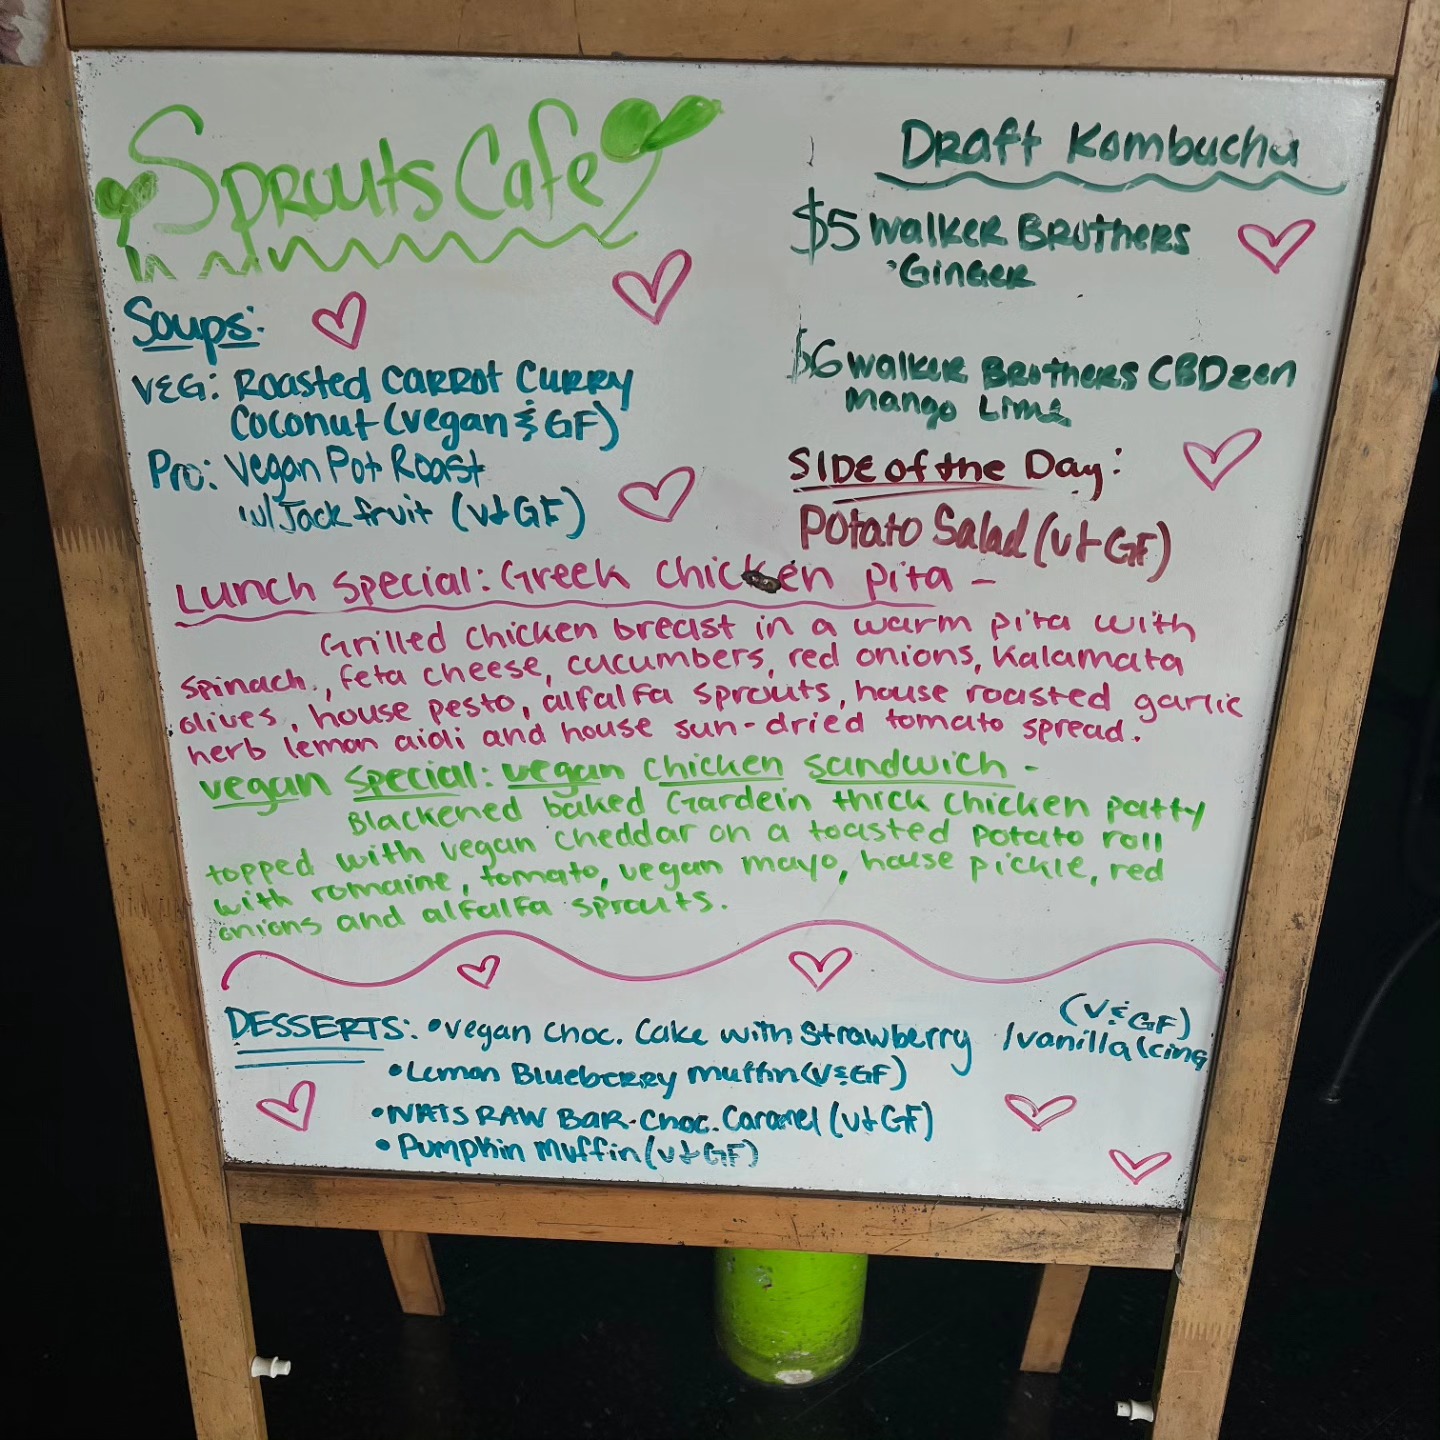 Sprouts Cafe
Soups:
VEG: Roasted Carrot Curry
Coconut (vegan & GF)
Pro: Vegan Pot Roast
w/Jackfruit (V+GF)
Draft Kombucha
$5 Walker Brothers
Ginger
$6 Walker Brothers CBD zen
Mango Lime
Side of the Day:
Potato Salad (V+GF)
Lunch Special: Greek Chicken pita -
Grilled chicken breast in a warm pita with
spinach, feta cheese, cucumbers, red onions, Kalamata
olives, house pesto, alfalfa sprouts, house roasted garlic
herb lemon aioli and house sun-dried tomato spread.
vegan special: vegan chicken sandwich -
Blackened baked Gardein thick chicken patty
topped with vegan cheddar on a toasted potato roll
with romaine, tomato, vegan mayo, house pickle, red
onions and alfalfa sprouts.
DESSERTS: •Vegan Choc. Cake with Strawberry /vanilla Icing
(V&GF)
•Lemon Blueberry muffin (V&GF)
•NATS RAW BAR-Choc. Caramel (V+GF)
•Pumpkin Muffin (V+GF)